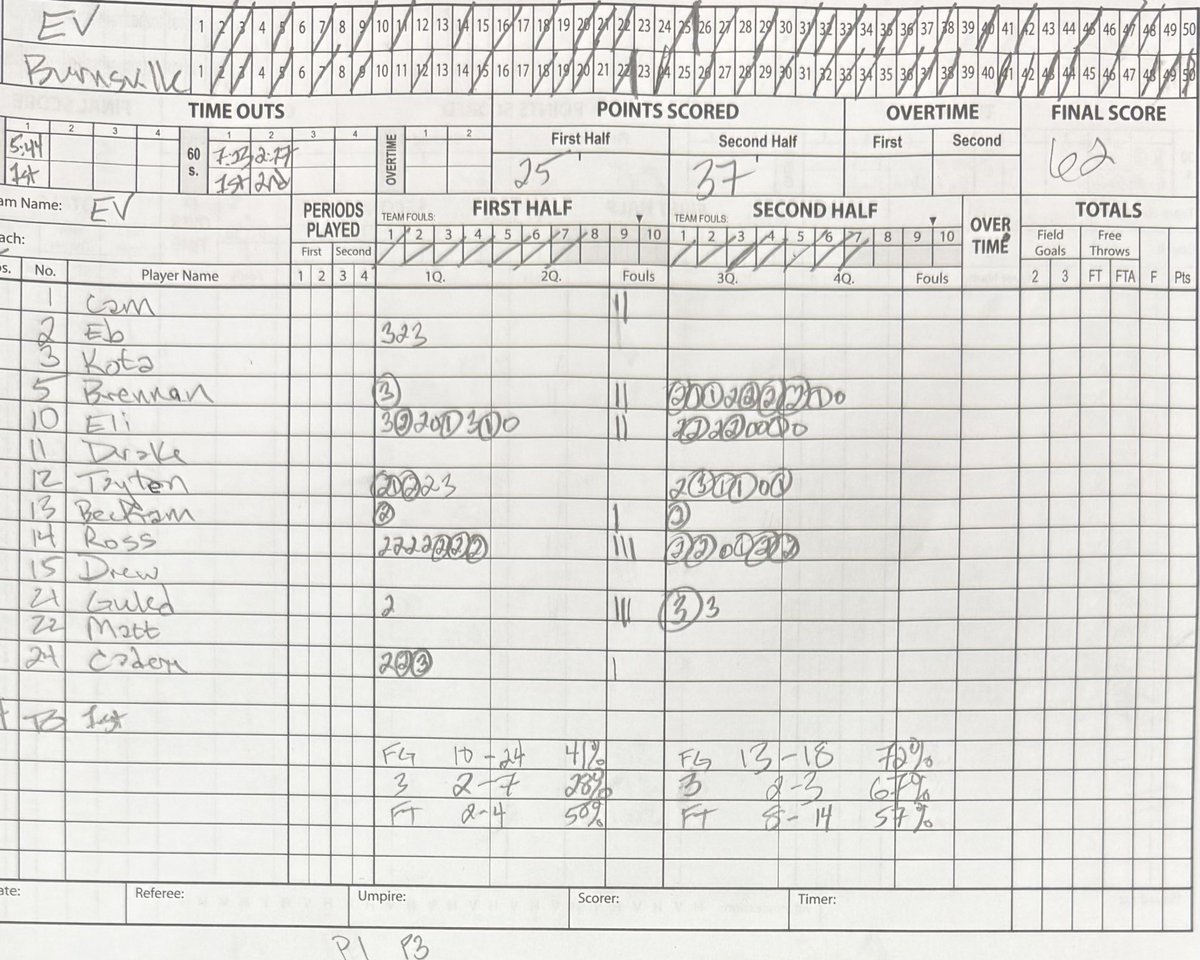 EV 1 2 3 4 5 6 7 8 9 10 11 12 13 14 15 16 17 18 19 20 21 22 23 24 25 26 27 28 29 30 31 32 33 34 35 36 37 38 39 40 41 42 43 44 45 46 47 48 49 50
Burnsville 1 2 3 4 5 6 7 8 9 10 11 12 13 14 15 16 17 18 19 20 21 22 23 24 25 26 27 28 29 30 31 32 33 34 35 36 37 38 39 40 41 42 43 44 45 46 47 48 49 50
TIME OUTS POINTS SCORED OVERTIME FINAL SCORE
1 2 3 4 1 2 3 4 1 2 First Half Second Half First Second
5:44 60 s. 7:13 2:17 OVERTIME 25 37 62
1st 1st 2nd
am Name: EV PERIODS PLAYED FIRST HALF SECOND HALF OVER TIME TOTALS
TEAM FOULS: 1 2 3 4 5 6 7 8 9 10 TEAM FOULS: 1 2 3 4 5 6 7 8 9 10
ach: First Second Field Goals Free Throws
os. No. Player Name 1 2 3 4 1Q. 2Q. Fouls 3Q. 4Q. Fouls 2 3 FT FTA F Pts
1 Cam II
2 Eb 323
3 Kota
5 Brennan 3 II
10 Eli 3220013010 II
11 Drake
12 Tayten
13 Beckam 2 I 2
14 Ross 2222222 III
15 Drew
21 Guled 2 III 3 3
22 Matt
24 Caden 223 I
1st
FG 10-24 41% FG 13-18 72%
3 2-7 28% 3 2-3 67%
FT 2-4 50% FT 8-14 57%
ate: Referee: Umpire: Scorer: Timer:
P1 P3